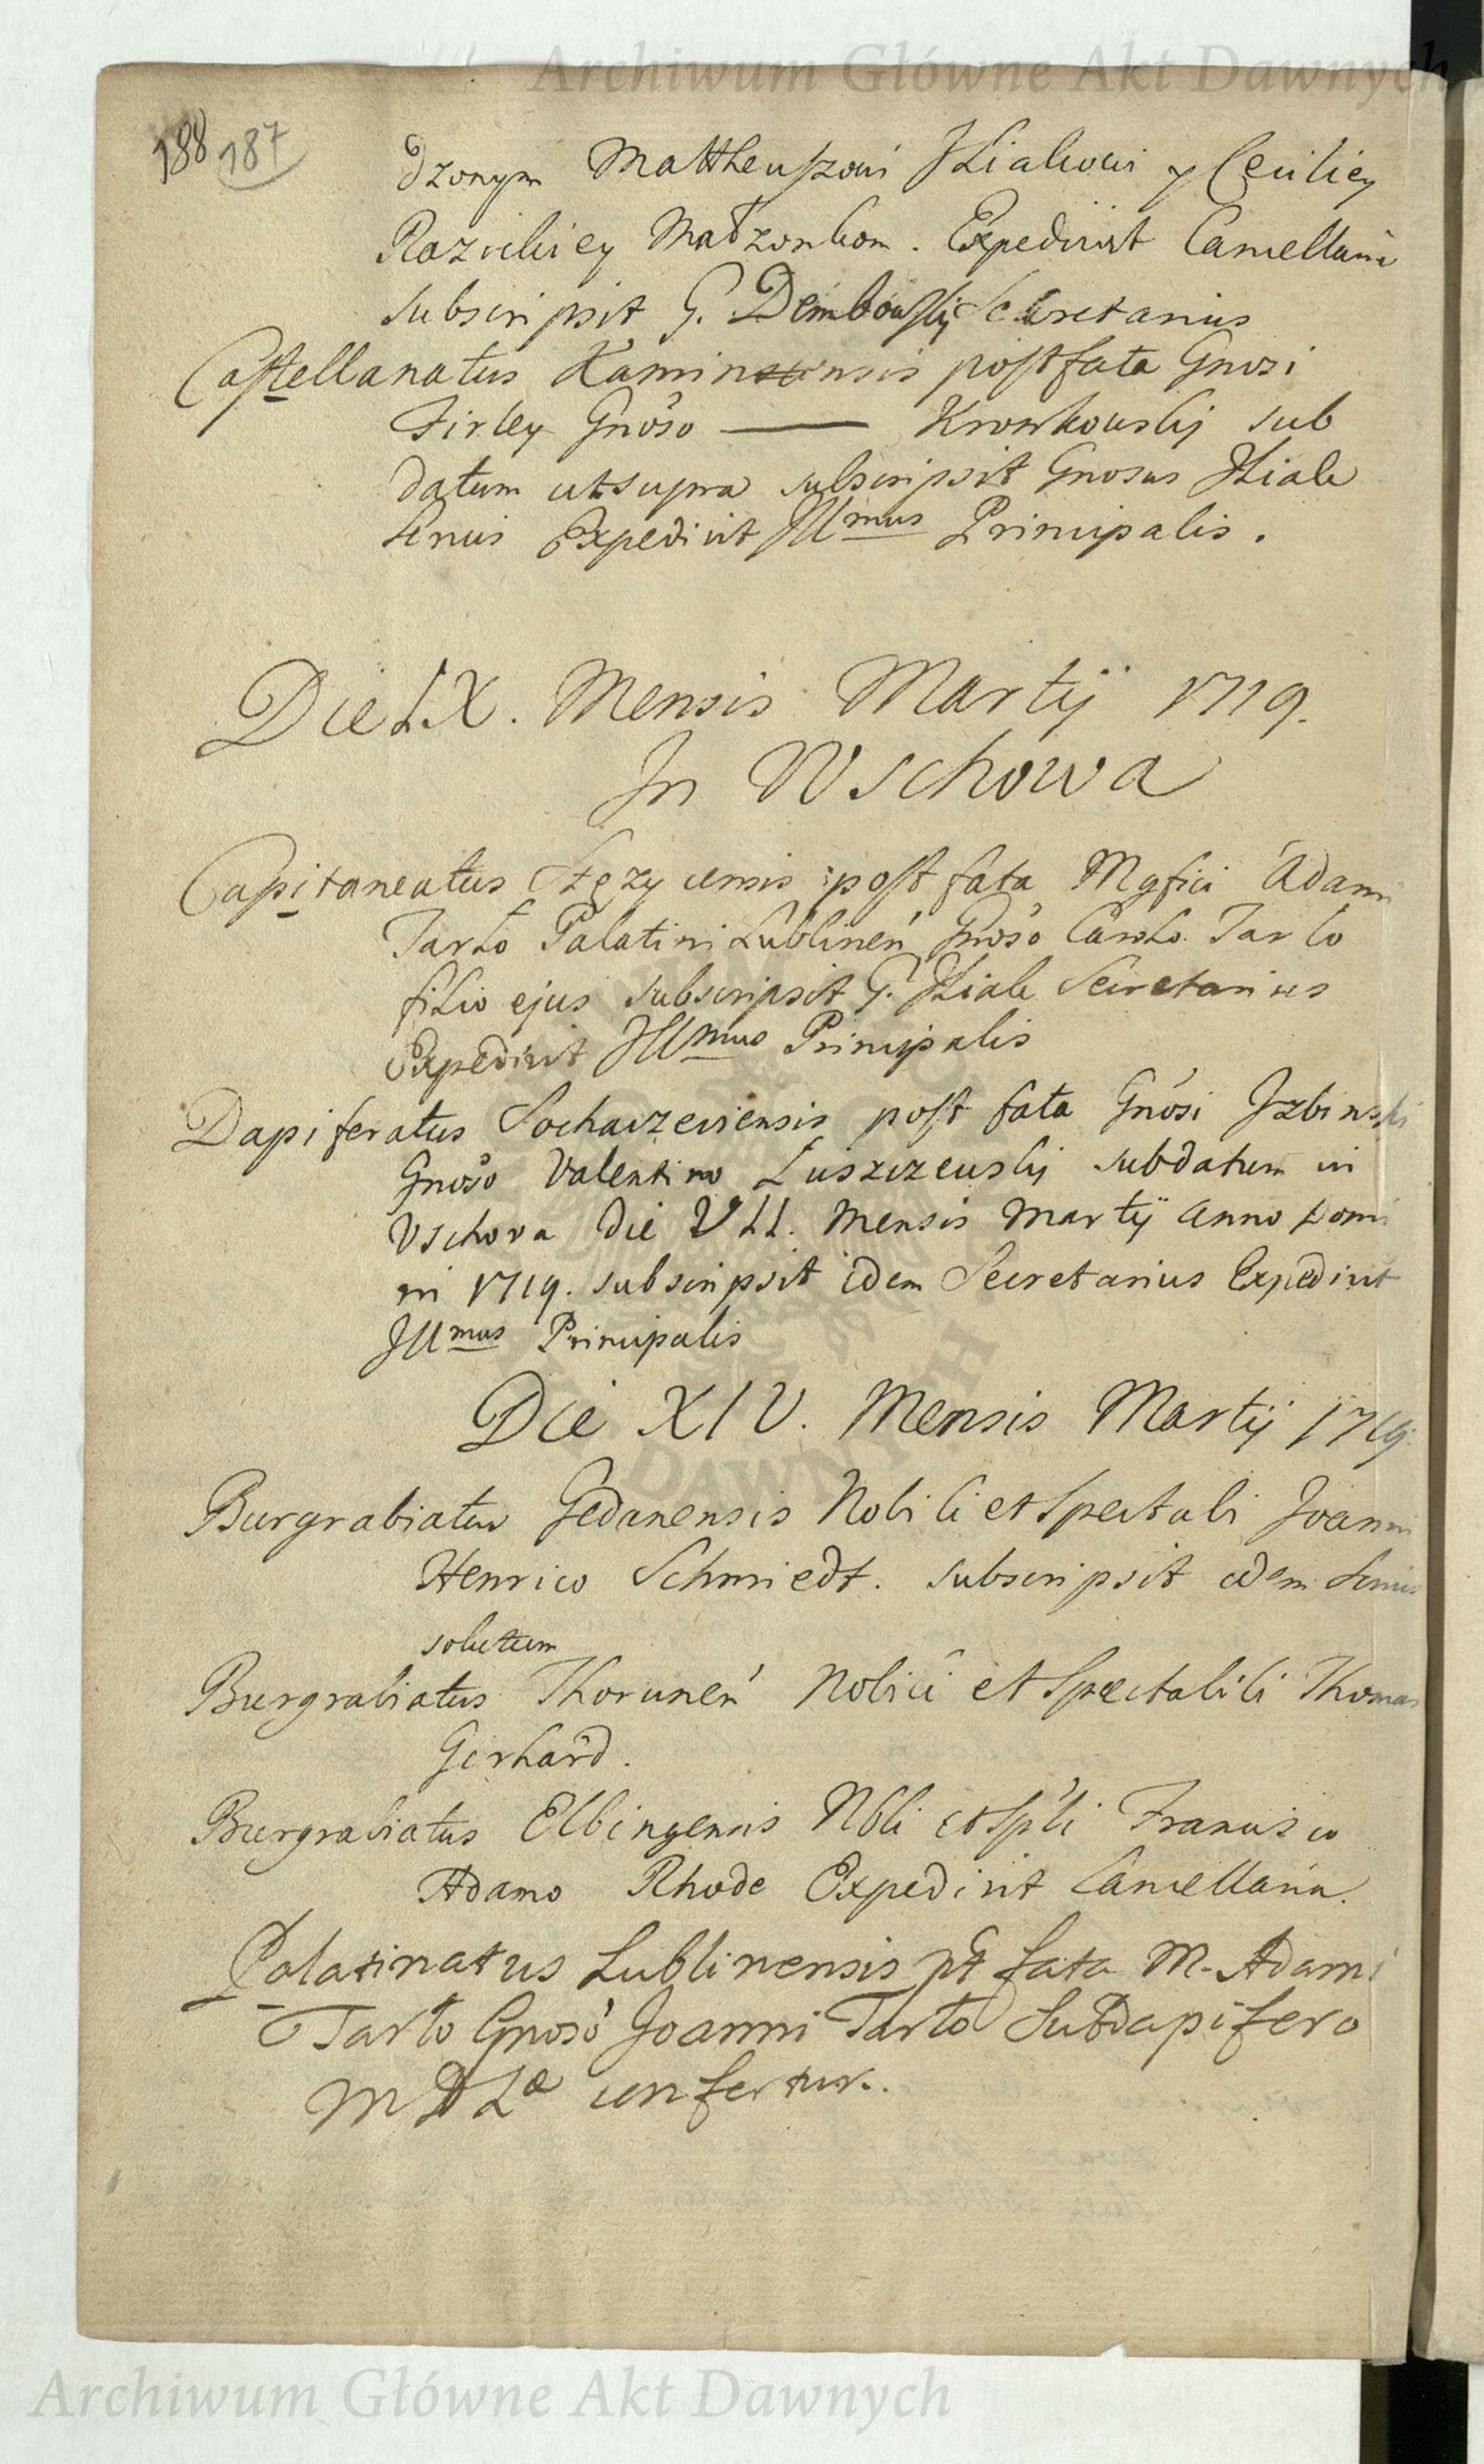 Archiwum Główne Akt Dawnych
188 187
dzonym Mattheuszowi y Ceciliey
Małzonkom. Expedivit Cancellaria
subscripsit G. Dembowskj Secretarius
Castellanatus Kaminensis post fata Gnosi
Firley Gnoso —— Kroskowskj sub
datum ut supra subscripsit Gnosus
Expedivit Illmus Principalis.
Die IX. Mensis Martij 1719.
In Wschowa
Capitaneatus Stęzycensis post fata Mgfici Adami
Tarło Palatini Lublinen Gnoso Carolo Tarło
filio ejus subscripsit G. Secretarius
Expedivit Illmus Principalis
Dapiferatus Sochaczeviensis post fata Gnosi Izbinski
Gnoso Valentino Luszczewskj sub datum in
Vschova die VII. Mensis Martij Anno Domi
ni 1719. subscripsit idem Secretarius Expedivit
Illmus Principalis
Die XIV. Mensis Martij 1719.
Burgrabiatus Gedanensis Nobili et Spectabi Joanni
Henrico Schmiedt. subscripsit idem
solutum
Burgrabiatus Thorunen Nobili et Spectabili Thomae
Gerhard.
Burgrabiatus Elbingensis Nbli et Spli Francisco
Adamo Rhode Expedivit Cancellaria.
Palatinatus Lublinensis pt fata M. Adami
Tarło Gnoso Joanni Tarło Subdapifero
M D La confertur.
Archiwum Główne Akt Dawnych